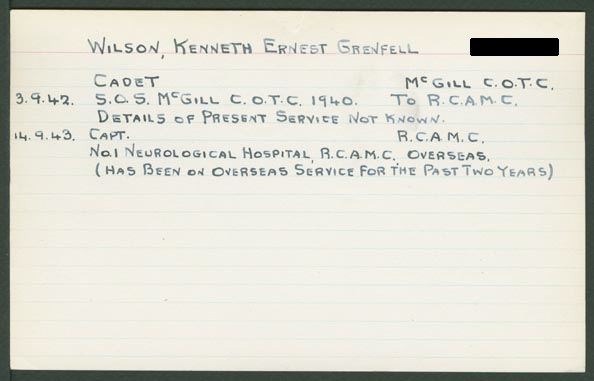 WILSON, KENNETH ERNEST GRENFELL
CADET McGILL C.O.T.C.
3.9.42. S.O.S. McGILL C.O.T.C. 1940. TO R.C.A.M.C.
DETAILS OF PRESENT SERVICE NOT KNOWN.
14.9.43. CAPT. R.C.A.M.C.
NO.1 NEUROLOGICAL HOSPITAL, R.C.A.M.C. OVERSEAS.
(HAS BEEN ON OVERSEAS SERVICE FOR THE PAST TWO YEARS)